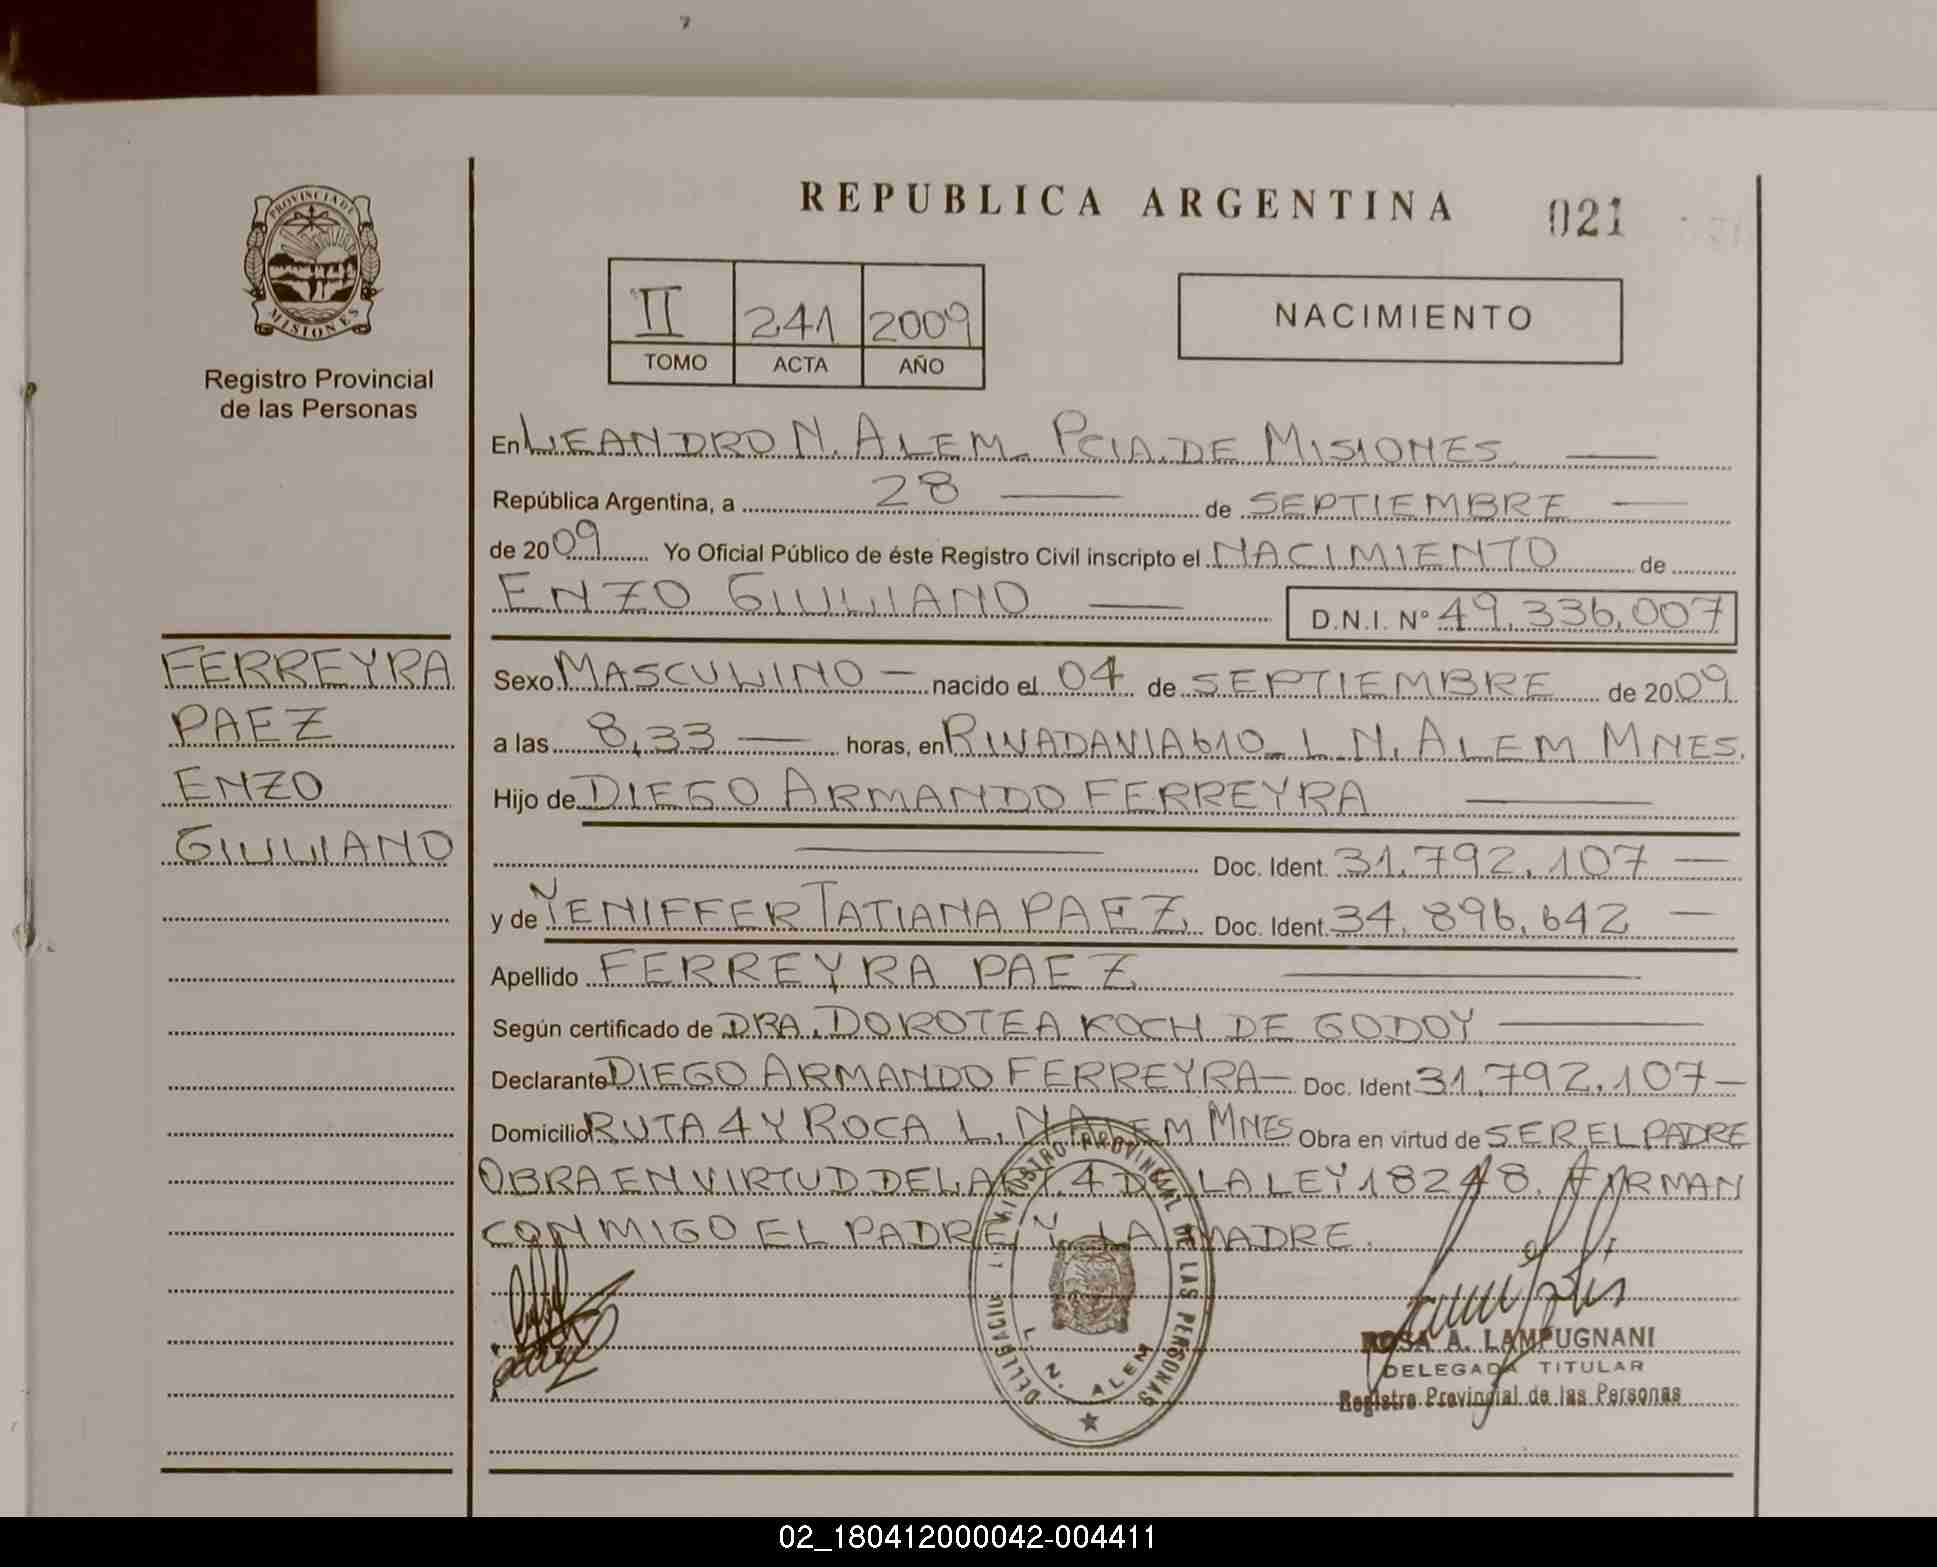 REPUBLICA ARGENTINA
021
PROVINCIA DE
MISIONES
Registro Provincial
de las Personas
II 241 2009
TOMO ACTA AÑO
NACIMIENTO
En LEANDRO N. ALEM. PCIA. DE MISIONES.
República Argentina, a 28 de SEPTIEMBRE
de 2009 Yo Oficial Público de éste Registro Civil inscripto el NACIMIENTO de
ENZO GIULIANO D.N.I. Nº 49.336.007
FERREYRA
PAEZ
ENZO
GIULIANO
Sexo MASCULINO nacido el 04 de SEPTIEMBRE de 2009
a las 8,33 horas, en RIVADAVIA 610 - L. N. ALEM MNES.
Hijo de DIEGO ARMANDO FERREYRA
Doc. Ident. 31.792.107
y de YENIFFER TATIANA PAEZ. Doc. Ident. 34.896.642
Apellido FERREYRA PAEZ
Según certificado de DRA. DOROTEA KOCH DE GODOY
Declarante DIEGO ARMANDO FERREYRA Doc. Ident 31.792.107
Domicilio RUTA 4 Y ROCA L. N. ALEM MNES Obra en virtud de SER EL PADRE
OBRA EN VIRTUD DEL ART. 4 DE LA LEY 18248. FIRMAN
CONMIGO EL PADRE Y LA MADRE.
REGISTRO PROVINCIAL DE LAS PERSONAS
L. N. ALEM
ROSA A. LAMPUGNANI
DELEGADA TITULAR
Registro Provincial de las Personas
02_180412000042-004411